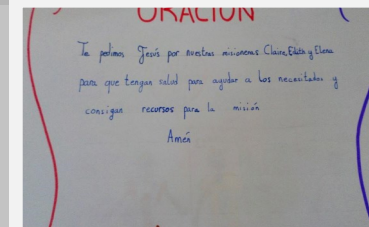 ORACIÓN
Te pedimos Jesús por nuestras misioneras Claire, Edith y Elena
para que tengan salud para ayudar a los necesitados y
consigan recursos para la misión
Amén